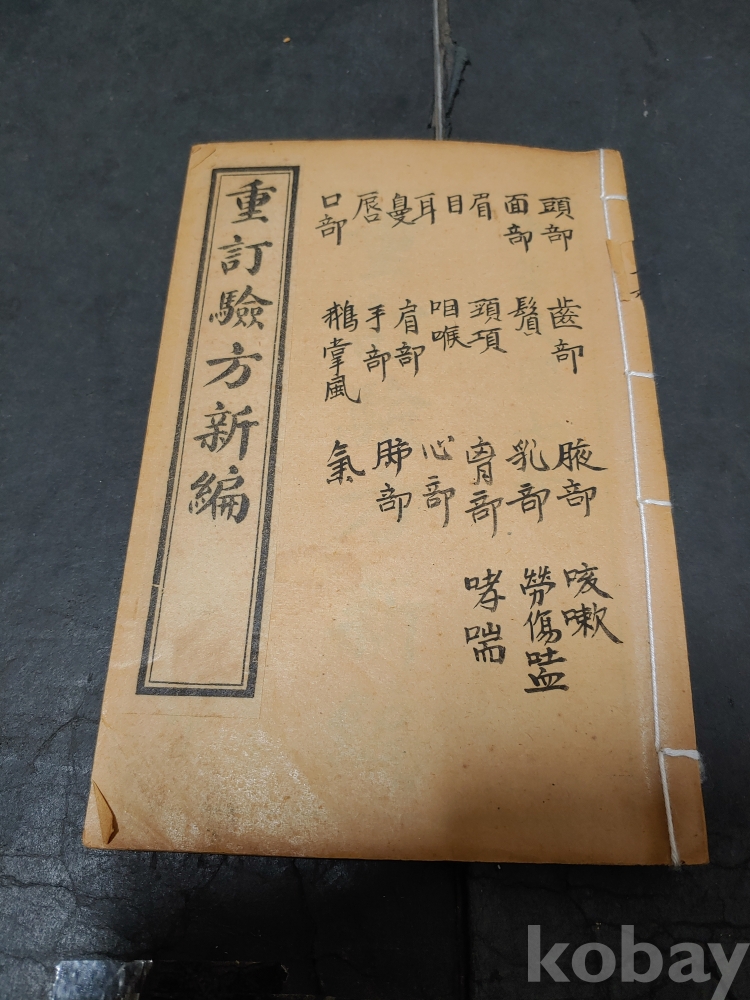 頭部
面部
眉
目
耳
鼻
唇
口部
齒部
頸項
咽喉
肩部
手部
鵝掌風
腋部
乳部
胷部
心部
肺部
氣
咳嗽
勞傷吐血
哮喘
重訂驗方新編
kobay